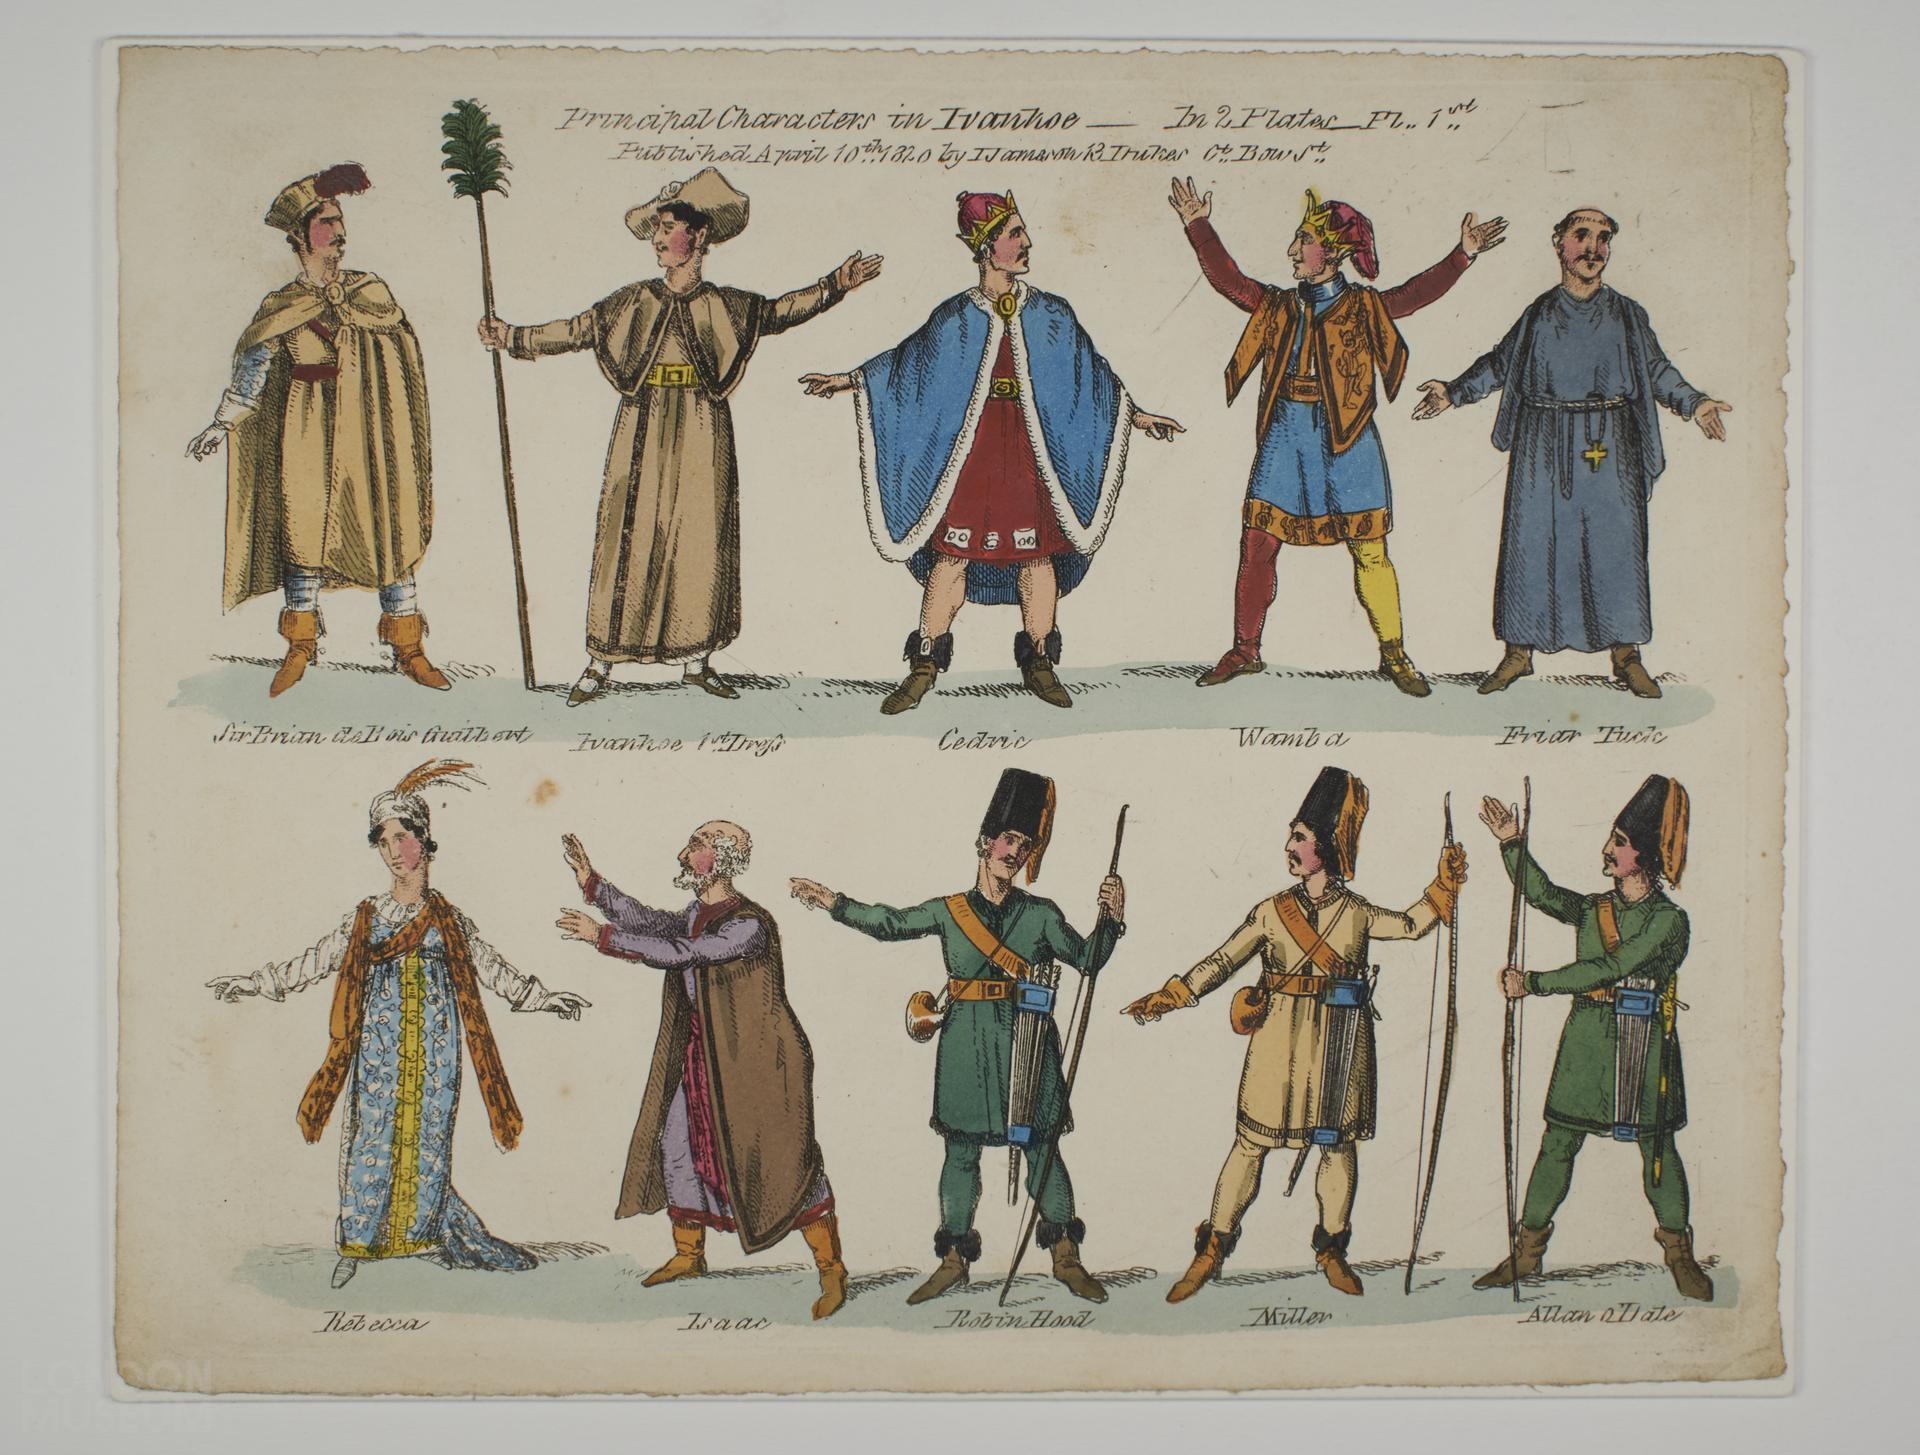 Principal Characters in Ivanhoe — In 2 Plates — Pl.. 1st..
Published April 10th.. 1820 by I Jameson 13 Dukes Ct.. Bow St..
Sir Brian de Bois Guilbert
Ivanhoe 1st Dress
Cedric
Wamba
Friar Tuck
Rebecca
Isaac
Robin Hood
Miller
Allan O Dale
LONDON
MUSEUM